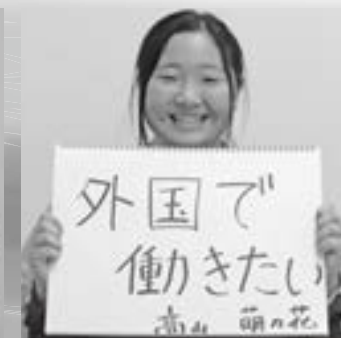 外国で
働きたい
高山 萌の花